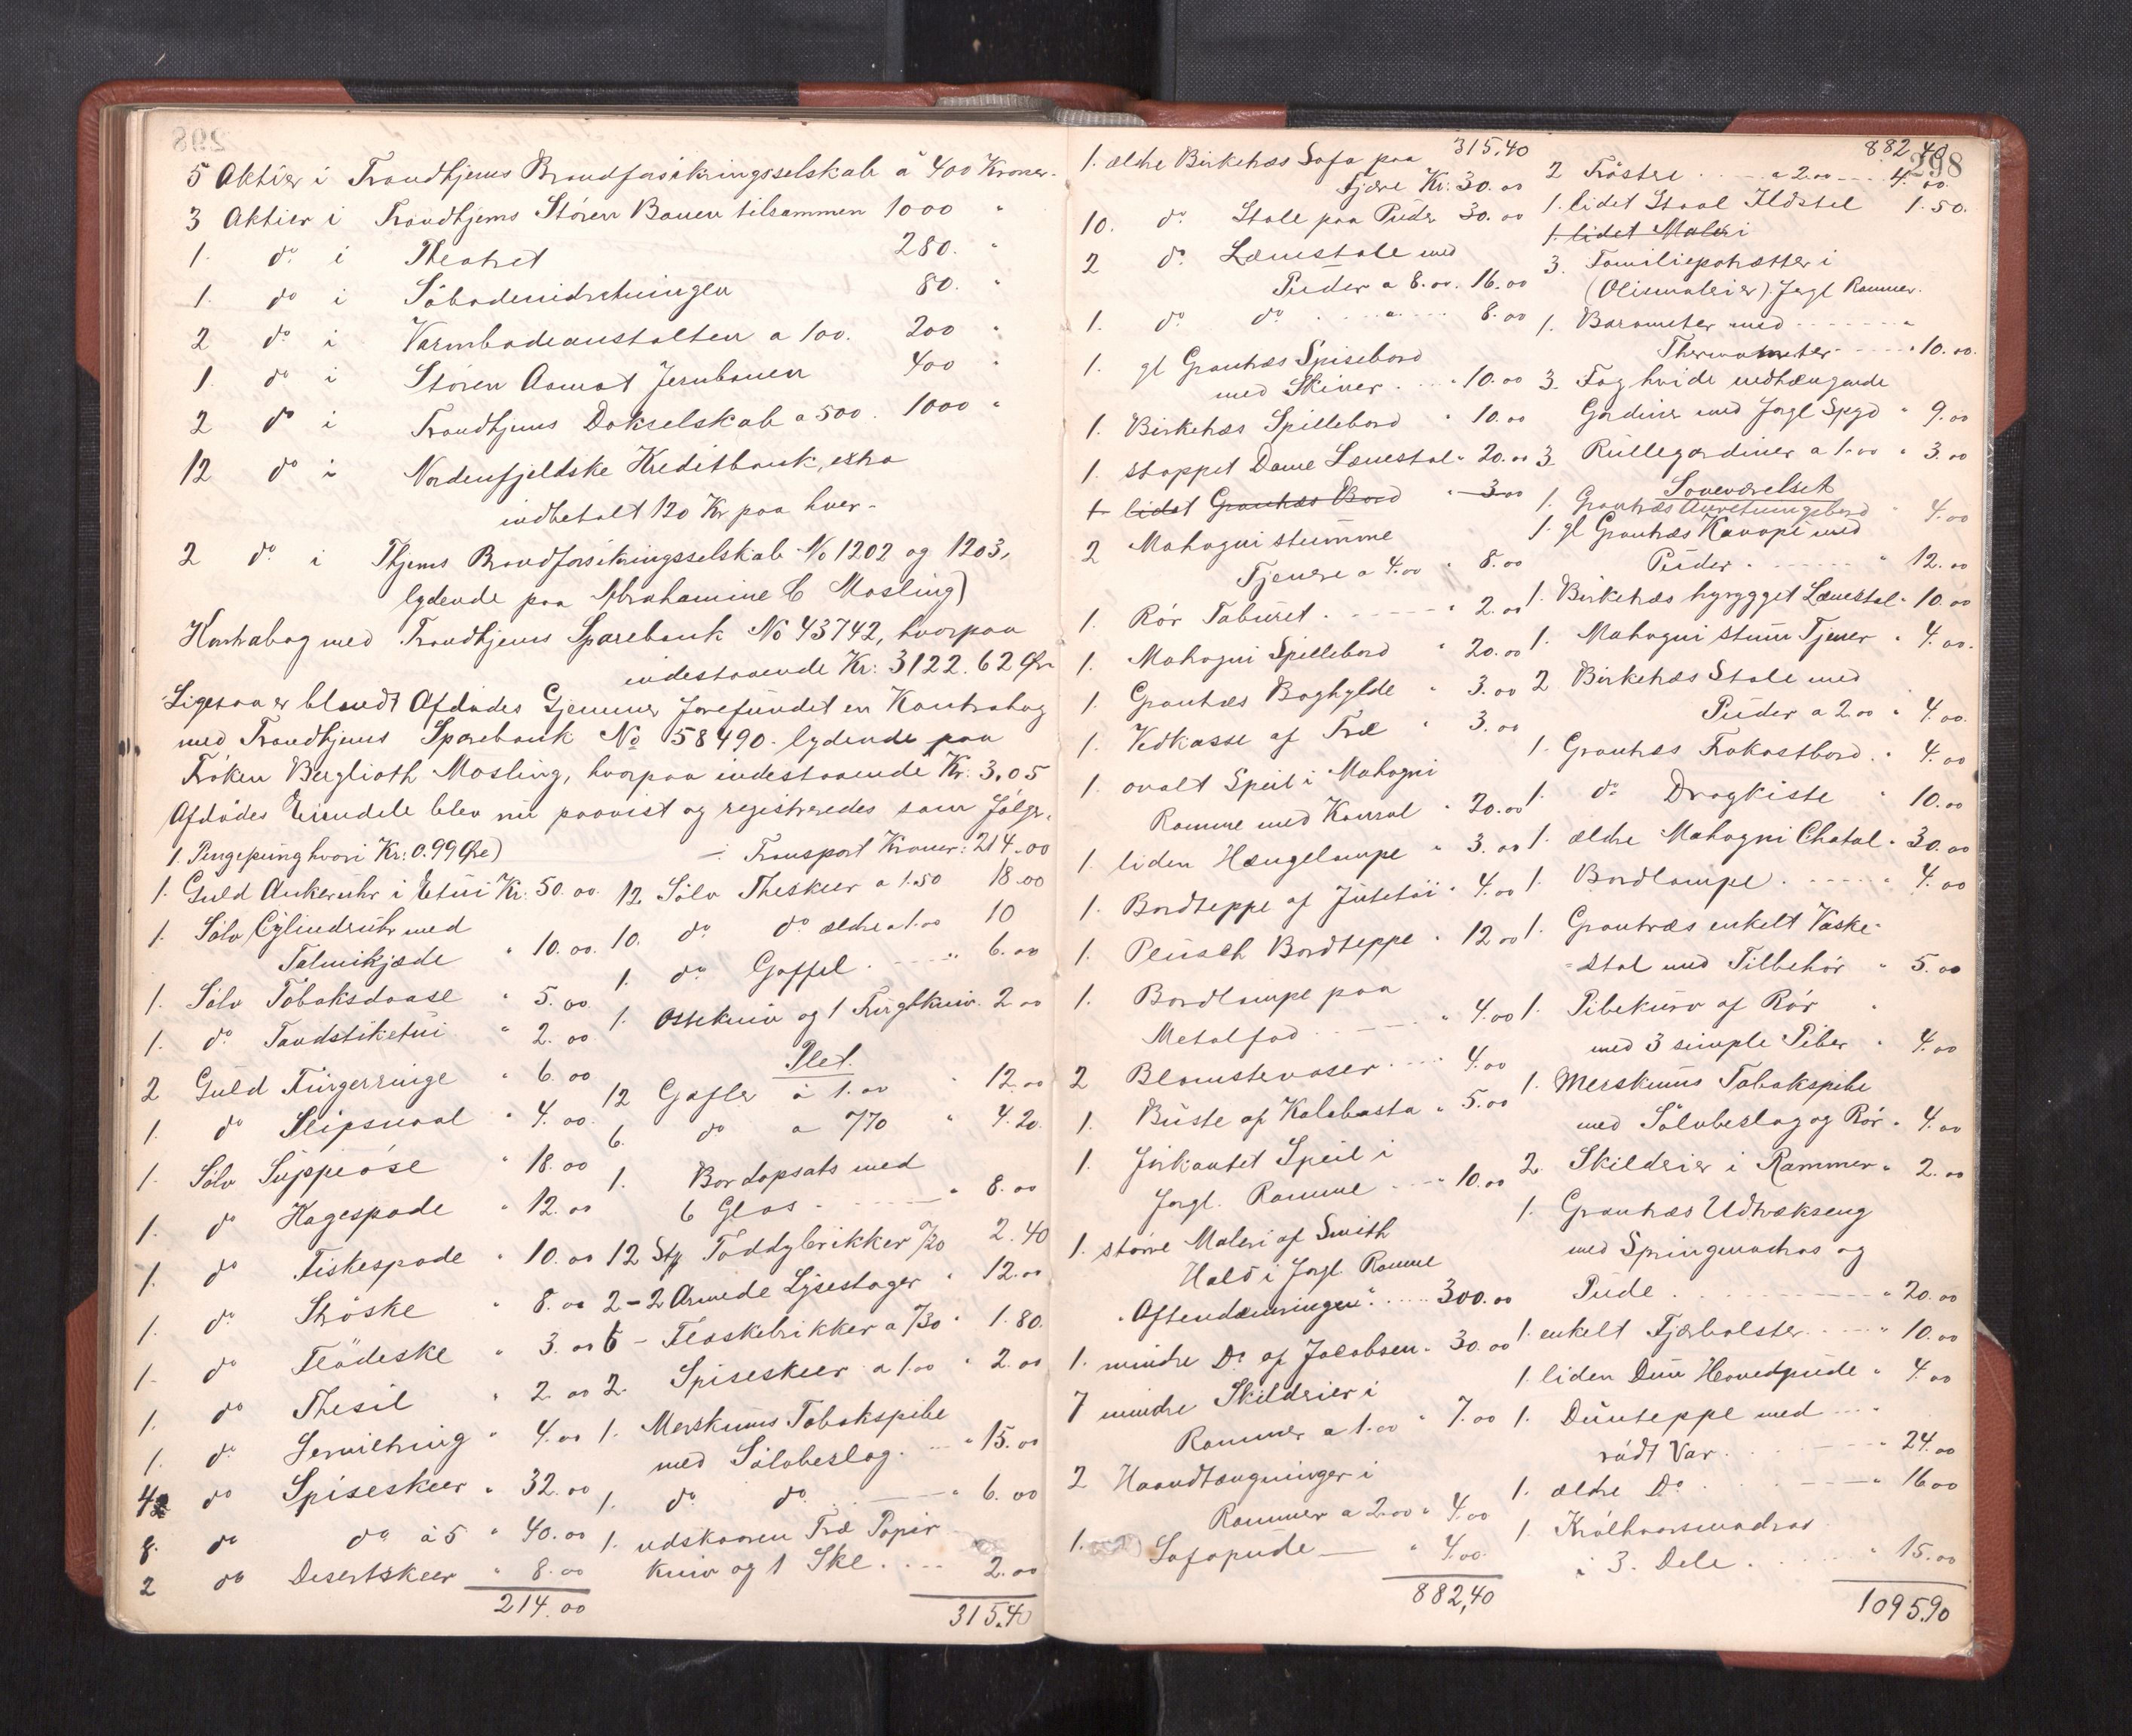 5 Aktier i Trondhjems Brandforsikringsselskab á 400 Kroner.
3 Aktier i Trondhjems Støren Banen tilsammen 1000 "
1. do i Theatret 280. "
1. do i Søbadeindretningen 80. "
2 do i Varmbadeanstalten a 100. 200 "
1. do i Støren Aamot Jernbanen 400 "
2 do i Trondhjems Dokselskab a 500. 1000 "
12 do i Nordenfjeldske Kreditbank, extra
indbetalt 120 Kr paa hver-
2 do i Thjems Brandforsikringsselskab No 1202 og 1203,
lydende paa Abrahamine C Mosling)
Kontrabog med Trondhjems Sparebank No 43742, hvorpaa
indestaaende Kr: 3122.62 Øre
Ligesaa er blandt Afdødes Gjemmer forefundet en Kontrabog
med Trondhjems Sparebank No 58490. lydende paa
Frøken Berglioth Mosling, hvorpaa indestaaende Kr. 3.05
Afdødes Eiendele blev nu paavist og registreredes som følger.
1. Pengepung hvori Kr: 0.99 Øre)
1. Guld Ankeruhr i Etui Kr. 50.00
1. Sølv Cylinderuhr med
Talmikjæde " 10.00.
1. Sølv Tobaksdaase " 5.00
1. do Tandstiketui " 2.00
2 Guld Fingerringe " 6.00
1. do Slipsnaal " 4.00.
1. Sølv Suppeøse " 18.00
1. do Kagespade " 12.00
1. do Fiskespade " 10.00
1. do Strøske " 8.00
1. do Flødeske " 3.00
1. do Thesil " 2.00
1. do Servietring " 4.00
42 do Spiseskeer " 32.00
8. do do á 5 " 40.00
2 do Desertskeer " 8.00
214.00
-: Transport Kroner: 214.00
12 Sølv Theskeer a 1.50 18.00
10. do do ældre a 1.00 10
1. do Gaffel . " 6.00
1. Osteknïv og 1 Frugtkniv. 2.00
Plet.
12 Gafler á 1.00 " 12.00
6. do a 70 " 4.20.
1. Bordopsats med
6 Glas . " 8.00
12 Stk Toddybrikker /20 2.40
2-2 Armede Lysestager " 12.00
6 - Flaskebrikker a /30 " 1.80.
2. Spiseskeer a 1.00 " 2.00
1. Merskums Tobakspibe
med Sølvbeslag. " 15.00
1. do do " 6.00
1. udskaaren Træ Papir
kniv og 1 Ske. 2.00
315.40
315.40
1. ældre Birketræs Sofa paa
Fjære Kr: 30.00
10. do Stole paa Puder 30.00
2 do Lænestole med
Puder a 8.00. 16.00
1. do do . " 8.00
1. gl Grantræs Spisebord
med Skiver. " 10.00
1. Birketræs Spillebord " 10.00
1. stoppet Dame Lænestol " 20.00
1 lidet Grantræs Bord " 3.00
2 Mahogni stumme
Tjenere a 4.00 " 8.00
1. Rør Taburet . " 2.00
1. Mahogni Spillebord " 20.00
1. Grantræs Boghylde " 3.00
1. Vedkasse af Træ " 3.00
1. ovalt Speil i Mahogni
Ramme med Konsol " 20.00
1. liden Hængelampe " 3.00
1. Bordteppe af Jutetøi " 4.00
1. Plusch Bordteppe " 12.00
1. Bordlampe paa
Metalfod " 4.00
2 Blomstervaser " 4.00
1. Buste af Kalebasta " 5.00
1. firkantet Speil i
forgl. Ramme " 10.00
1. større Maleri af Smith
Hald i forgl. Ramme
"Aftendæmringen". 300.00
1. mindre Do af Jacobsen " 30.00
7 mindre Skilderier i
Rammer a 1.00 " 7.00
2 Haandtegninger i
Rammer a 2.00 " 4.00
1. Sofapude " 4.00.
882,40
298
882,40
2 Trøstre . " a 2.00 4.00.
1. lidet Staal Ildstel 1.50.
1. lidet Maleri
3. Familieportrætter i
(Oliemalerier) forgl Rammer.
1. Barometer med "
Thermometer " 10.00.
3. Fag hvide nedhængende
Gardiner med forgl Spyd " 9.00
3 Rullegardiner a 1.00 " 3.00
Soveværelset
1. Grantræs Anretningsbord " 4.00
1. gl Grantræs Kanape med
Puder . " 12.00
1. Birketræs høirygget Lænestol " 10.00
1. Mahogni stum Tjener " 4.00.
2 Birketræs Stole med
Puder a 2.00 " 4.00.
1. Grantræs Frokostbord. " 4.00
1. do Dragkiste " 10.00
1. ældre Mahogni Chatol " 30.00
1. Bordlampe . " 4.00
1. Grantræs enkelt Vaske-
stol med Tilbehør " 5.00
1. Pibekurv af Rør "
med 3 simple Piber " 4.00
1. Merskums Tobakspibe
med Sølvbeslag og Rør " 4.00
2. Skilderier i Rammer " 2.00
1. Grantræs Udtrækseng
med Springmadras og
Pude . " 20.00
1. enkelt Fjærbolster " 10.00
1. liden Dun Hovedpude " 4.00
1. Dunteppe med "
rødt Var. " 24.00
1. ældre Do . " 16.00
1. Krølhaarsmadras
i 3. Dele . " 15.00
1095.90